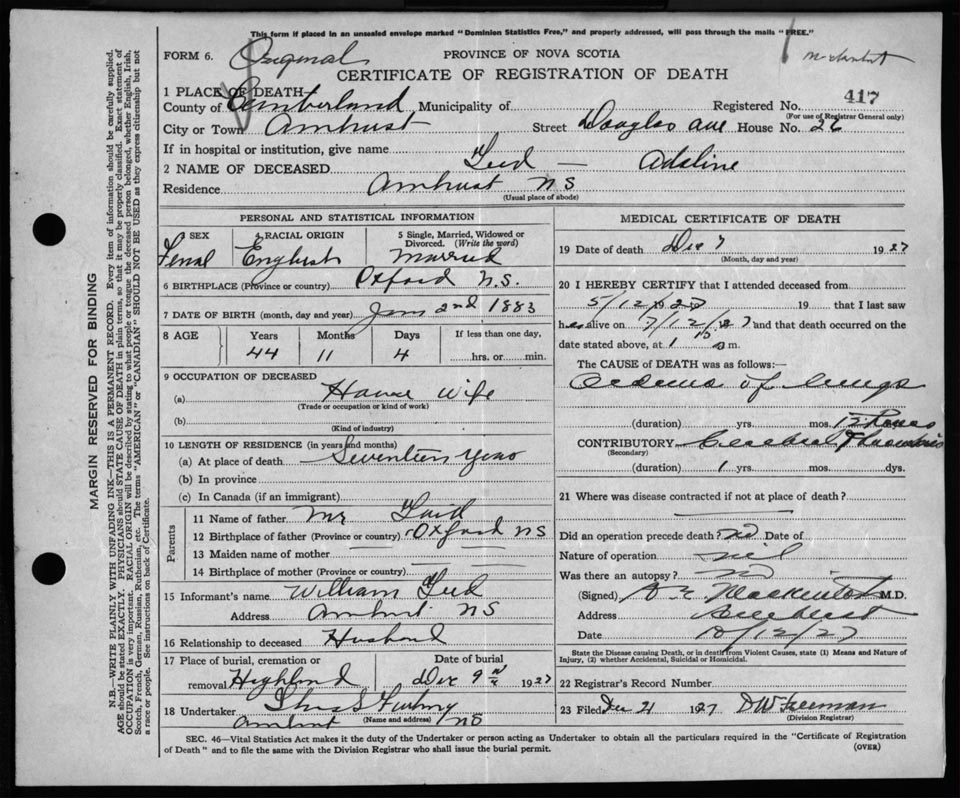 This form if placed in an unsealed envelope marked "Dominion Statistics Free," and properly addressed, will pass through the mails "FREE."
FORM 6. Original PROVINCE OF NOVA SCOTIA
CERTIFICATE OF REGISTRATION OF DEATH
1 PLACE OF DEATH—
County of Cumberland Municipality of Registered No. 417
(For use of Registrar General only)
City or Town Amhust Street Douglas ave House No. 26
If in hospital or institution, give name
2 NAME OF DECEASED Adaline
Residence Amhust NS
(Usual place of abode)
PERSONAL AND STATISTICAL INFORMATION
SEX 4 RACIAL ORIGIN 5 Single, Married, Widowed or Divorced. (Write the word)
Femal English Married
6 BIRTHPLACE (Province or country) Oxford N.S.
7 DATE OF BIRTH (month, day and year) Jan 2nd 1883
8 AGE Years Months Days If less than one day,
44 11 4 hrs. or min.
9 OCCUPATION OF DECEASED
(a) House wife
(Trade or occupation or kind of work)
(b)
(Kind of industry)
10 LENGTH OF RESIDENCE (in years and months)
(a) At place of death Seventeen years
(b) In province
(c) In Canada (if an immigrant)
Parents
11 Name of father Mr
12 Birthplace of father (Province or country) Oxford NS
13 Maiden name of mother
14 Birthplace of mother (Province or country)
15 Informant's name William
Address Amhust NS
16 Relationship to deceased Husband
17 Place of burial, cremation or Date of burial
removal Highland Dec 9 1927
18 Undertaker
(Name and address)
Amhust NS
MEDICAL CERTIFICATE OF DEATH
19 Date of death Dec 7 1927
(Month, day and year)
20 I HEREBY CERTIFY that I attended deceased from
5/12/27 19 that I last saw
h er alive on 7/12/27 and that death occurred on the
date stated above, at 1 m.
The CAUSE OF DEATH was as follows:—
Oedema of lungs
(duration) yrs. mos. 12 hours
CONTRIBUTORY Cerebral Thrombosis
(Secondary)
(duration) 1 yrs. mos. dys.
21 Where was disease contracted if not at place of death?
Did an operation precede death? no Date of
Nature of operation nil
Was there an autopsy? no
(Signed) Mackintosh M.D.
Address Amherst
Date 10/12/27
State the Disease causing Death, or in death from Violent Causes, state (1) Means and Nature of Injury, (2) whether Accidental, Suicidal or Homicidal.
22 Registrar's Record Number
23 Filed Dec 21 1927 D W Freeman
(Division Registrar)
SEC. 46—Vital Statistics Act makes it the duty of the Undertaker or person acting as Undertaker to obtain all the particulars required in the "Certificate of Registration
of Death" and to file the same with the Division Registrar who shall issue the burial permit.
(OVER)
MARGIN RESERVED FOR BINDING
N.B.—WRITE PLAINLY WITH UNFADING INK—THIS IS A PERMANENT RECORD. Every item of information should be carefully supplied.
AGE should be stated EXACTLY. PHYSICIANS should STATE CAUSE OF DEATH in plain terms, so that it may be properly classified. Exact statement of
OCCUPATION is very important. RACIAL ORIGIN will be described by stating to what people or tongue the deceased person belonged, whether English, Irish,
Scotch, French, German, Russian, Ruthenian, etc. The terms "AMERICAN" or "CANADIAN" SHOULD NOT BE USED as they express citizenship but not
a race or people. See instructions on back of Certificate.